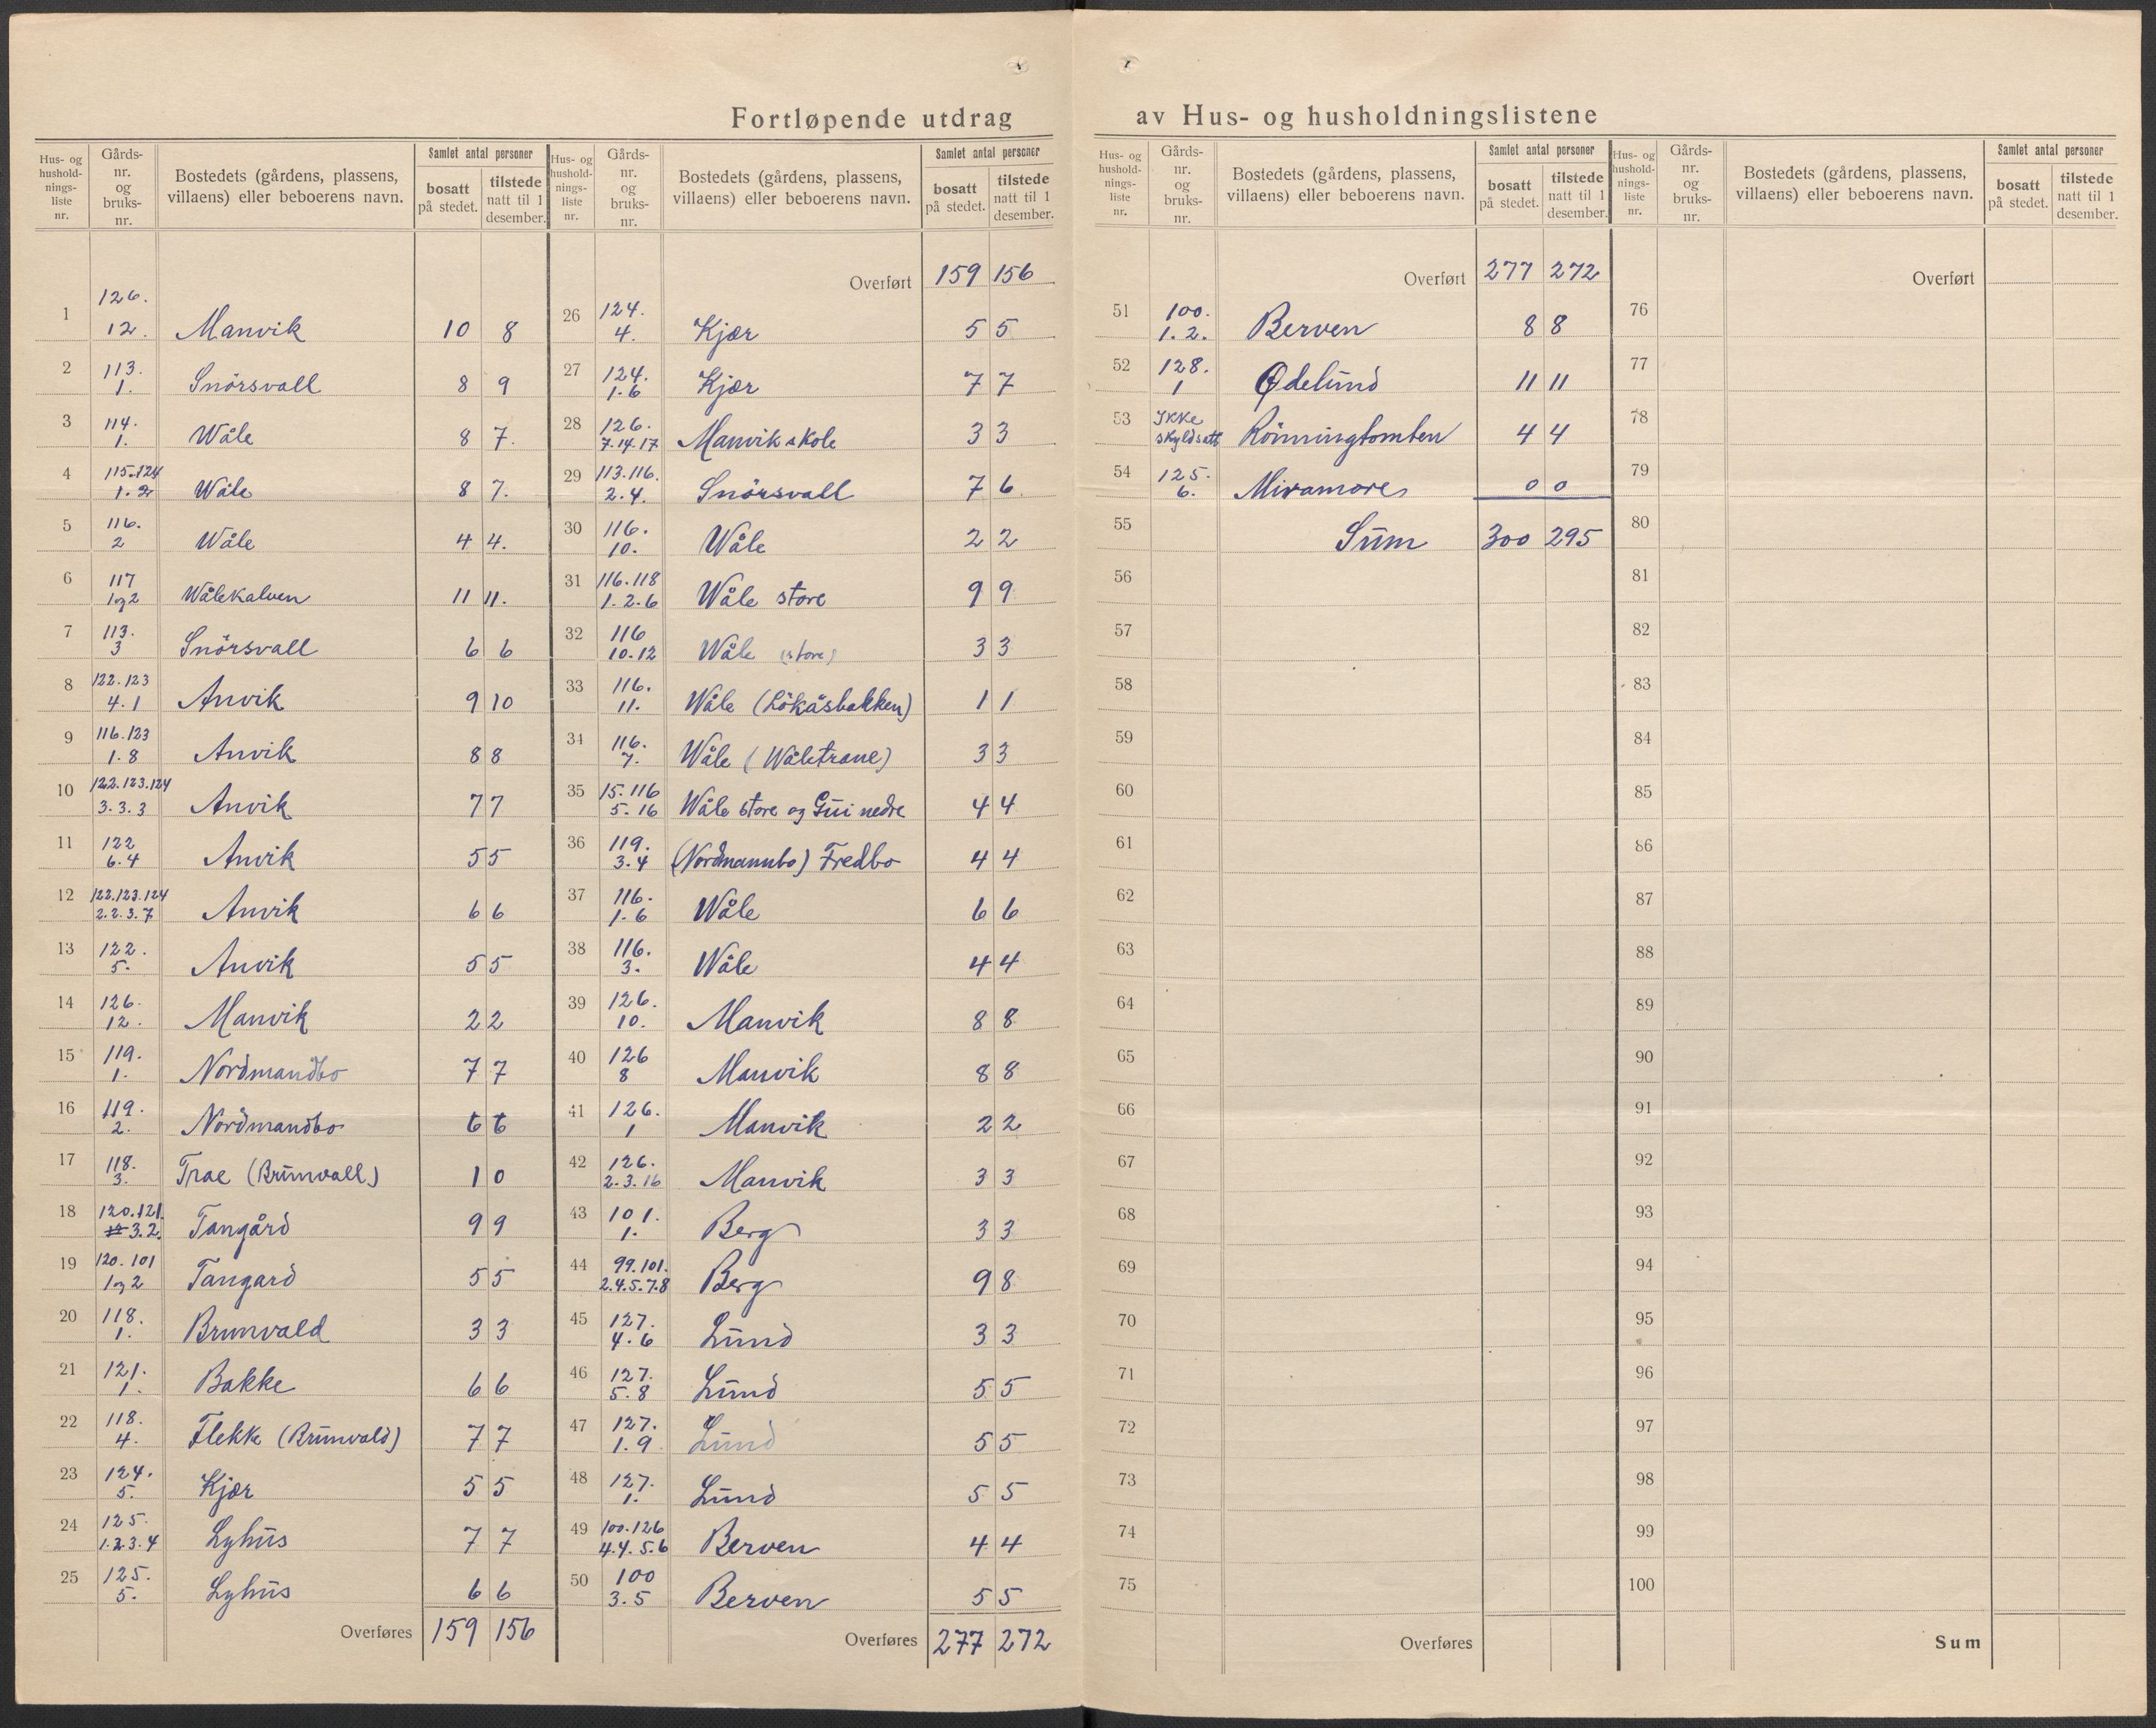 Fortløpende utdrag av Hus- og husholdningslistene
Hus- og husholdnings-liste nr. | Gårds-nr. og bruks-nr. | Bostedets (gårdens, plassens, villaens) eller beboerens navn. | Samlet antal personer | bosatt på stedet. | tilstede natt til 1 desember.
1 126. 12. Manvik 10 8
2 113. 1. Snörsvall 8 9
3 114. 1. Wåle 8 7.
4 115.124 1.2 Wåle 8 7.
5 116. 2 Wåle 4 4.
6 117 1og2 Wålekalven 11 11.
7 113. 3 Snörsvall 6 6
8 122.123 4.1 Anvik 9 10
9 116.123 1.8 Anvik 8 8
10 122.123.124 3.3.3 Anvik 7 7
11 122 6.4 Anvik 5 5
12 122.123.124 2.2.3.7 Anvik 6 6
13 122. 5. Anvik 5 5
14 126. 12. Manvik 2 2
15 119. 1. Nordmandbo 7 7
16 119. 2. Nordmandbo 6 6
17 118. 3. Trae (Brünvall) 1 0
18 120.121. 3.2. Tangård 9 9
19 120.101 1og2 Tangard 5 5
20 118. 1. Brunvald 3 3
21 121. 1. Bakke 6 6
22 118. 4. Flekke (Brünvald) 7 7
23 124. 5. Kjær 5 5
24 125. 1.2.3.4 Lyhüs 7 7
25 125. 5. Lyhüs 6 6
Overføres 159 156
Hus- og husholdnings-liste nr. | Gårds-nr. og bruks-nr. | Bostedets (gårdens, plassens, villaens) eller beboerens navn. | Samlet antal personer | bosatt på stedet. | tilstede natt til 1 desember.
Overført 159 156
26 124. 4. Kjær 5 5
27 124. 1.6 Kjær 7 7
28 126. 7.14.17 Manvik skole 3 3
29 113.116. 2.4. Snörsvall 7 6
30 116. 10. Wåle 2 2
31 116.118 1.2.6 Wåle store 9 9
32 116 10.12 Wåle (store) 3 3
33 116. 11. Wåle (Lökåsbakken) 1 1
34 116. 7. Wåle (Wåletrane) 3 3
35 15.116 5.16 Wåle store og Güi nedre 4 4
36 119. 3.4 (Nordmannbo) Fredbo 4 4
37 116. 1.6 Wåle 6 6
38 116. 3. Wåle 4 4
39 126. 10. Manvik 8 8
40 126 8 Manvik 8 8
41 126. 1 Manvik 2 2
42 126. 2.3.16 Manvik 3 3
43 101. 1. Berg 3 3
44 99.101. 2.4.5.7.8 Berg 9 8
45 127. 4.6 Lünd 3 3
46 127. 5.8 Lünd 5 5
47 127. 1.9 Lünd 5 5
48 127. 1. Lünd 5 5
49 100.126 4.4.5.6 Berven 4 4
50 100 3.5 Berven 5 5
Overføres 277 272
Hus- og husholdnings-liste nr. | Gårds-nr. og bruks-nr. | Bostedets (gårdens, plassens, villaens) eller beboerens navn. | Samlet antal personer | bosatt på stedet. | tilstede natt til 1 desember.
Overført 277 272
51 100. 1.2. Berven 8 8
52 128. 1 Ødelünd 11 11
53 Ikke skyldsatt Rönningtomten 4 4
54 125. 6. Miramare 0 0
55 Süm 300 295
56
57
58
59
60
61
62
63
64
65
66
67
68
69
70
71
72
73
74
75
Overføres
Hus- og husholdnings-liste nr. | Gårds-nr. og bruks-nr. | Bostedets (gårdens, plassens, villaens) eller beboerens navn. | Samlet antal personer | bosatt på stedet. | tilstede natt til 1 desember.
Overført
76
77
78
79
80
81
82
83
84
85
86
87
88
89
90
91
92
93
94
95
96
97
98
99
100
Sum